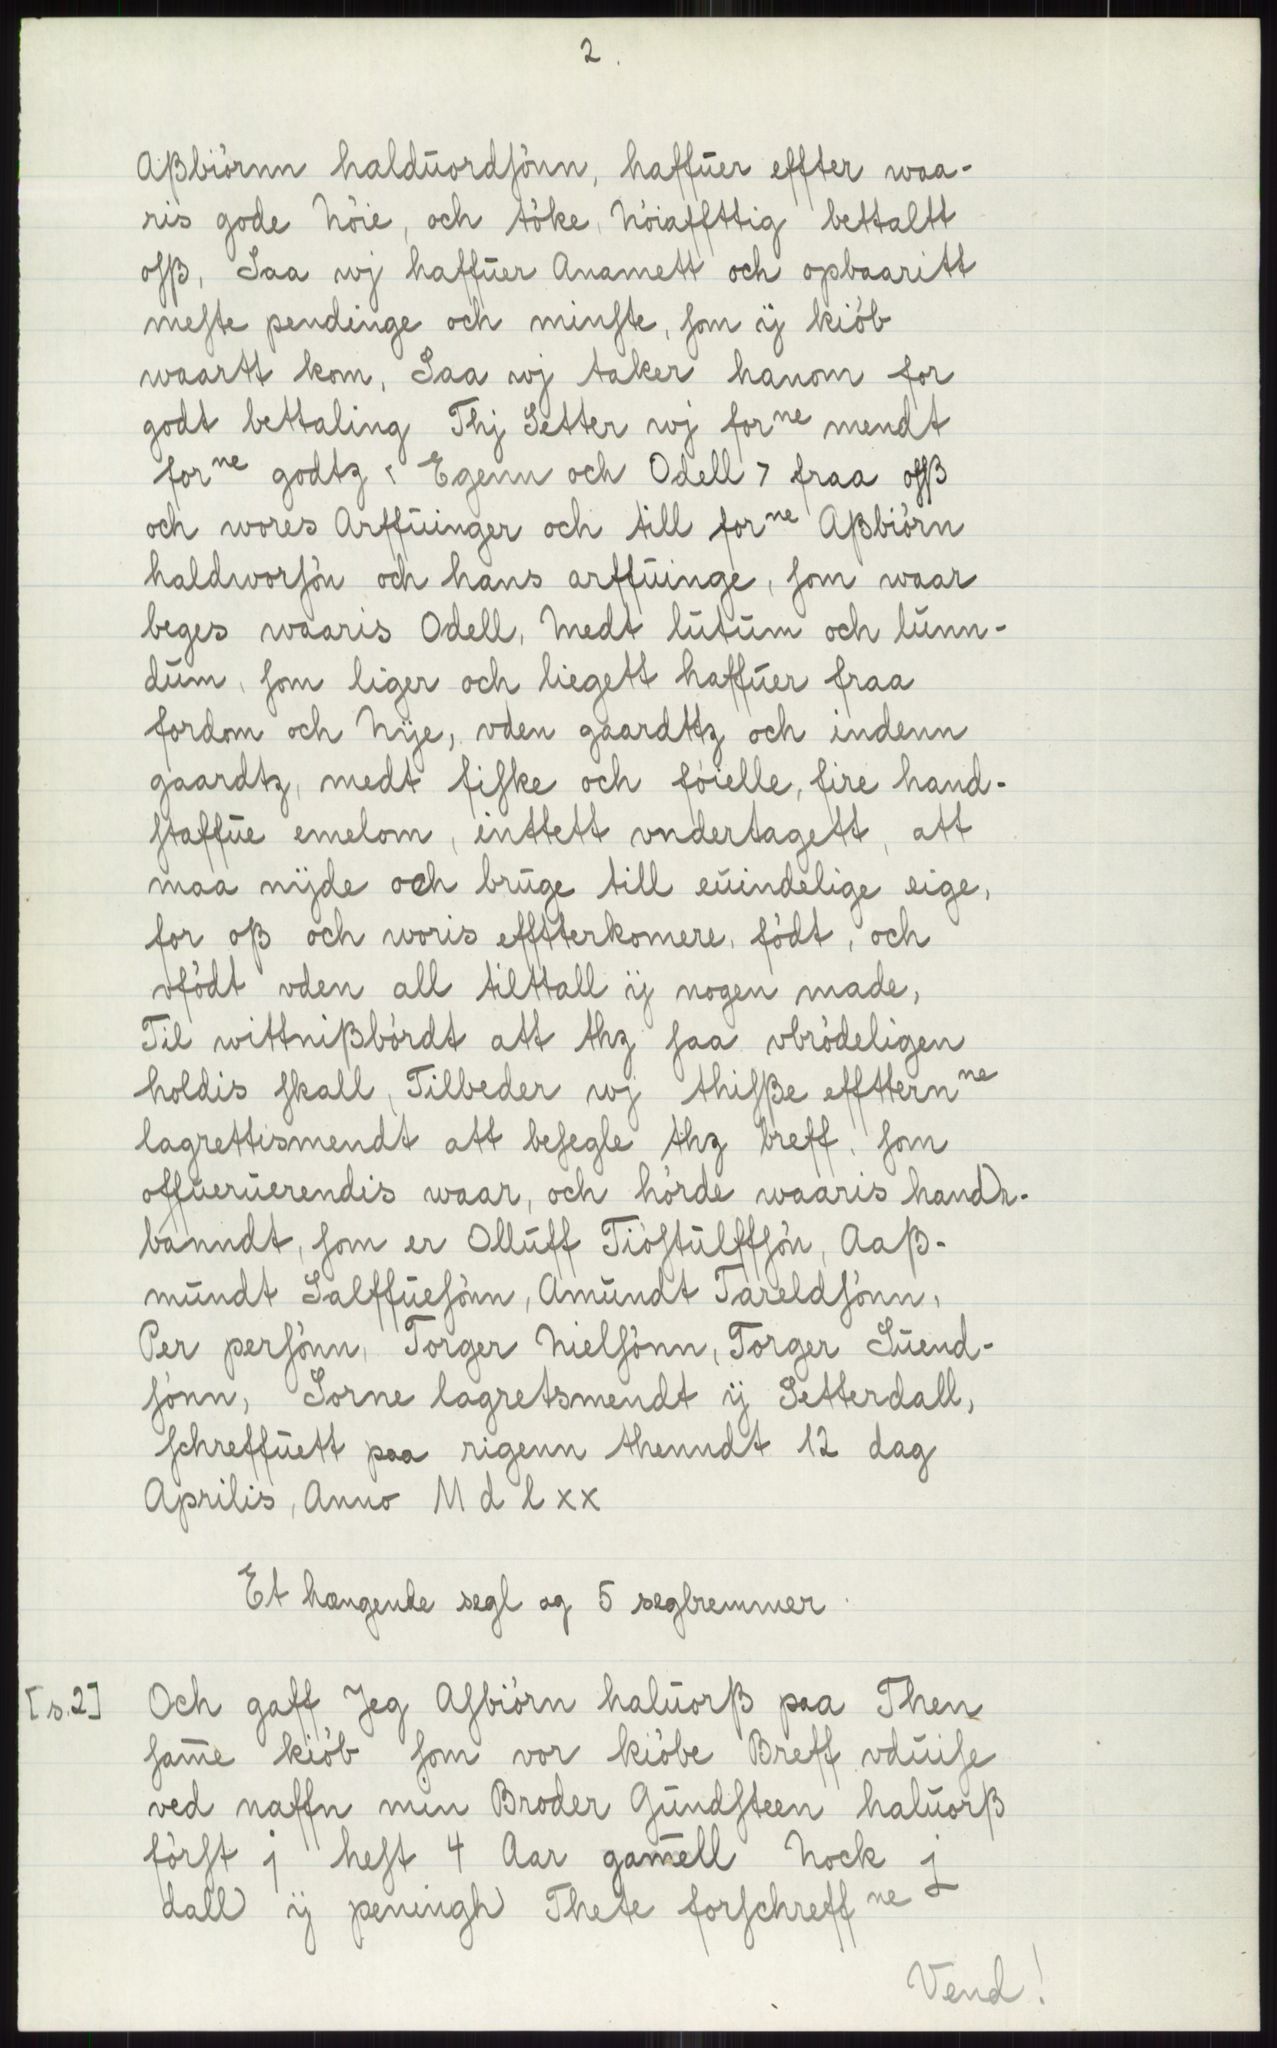 2.
Aßbiörnn halduordſönn, haffuer effter waa-
ris gode Nöie, och töke, Nöiaffttig bettaltt
oſß, Saa wj haffuer Anamett och opbaaritt
meſte pendinge och minſte, ſom ij kiöb
waartt kom, Saa wj taker hanom for
godt bettaling Thj Setter wj forne mendt
forne godtz < Egenn och Odell > fraa oſß
och wores Arffuinger och till forne Aßbiörn
haldworſön och hans arffuinge, ſom waar
beges waaris Odell, Medt lutum och lunn-
dum, ſom liger och liegett haffuer fraa
fordom och Nije, vden gaardttz och indenn
gaardtz, medt fiſke och föielle, fire hand-
ſtaffue emelom, inttett vndertagett, att
maa nijde och bruge till euindelige eige,
for oß och woris efftterkomere, födt, och
vfödt vden all tilttall ij nogen made,
Til wittnißbördt att thz ſaa vbrödeligen
holdis ſkall, Tilbeder wj thiſße efftternne
lagrettismendt att beſegle thz breff, ſom
offueruerendis waar, och hörde waaris handz-
banndt, ſom er Olluff Tiöſtulffſön, Aaß-
mundt Salffueſönn, Amundt Tareldſönn,
Per perſönn, Torger Nielſönn, Torger Suend-
ſönn, Sorne lagretsmendt ij Setterdall,
ſchreffuett paa rigenn thenndt 12 dag
Aprilis, Anno M d l x x
Et hængende segl og 5 seglremmer
[s.2] Och gaff Jeg Aſbiörn haluorß paa Then
ſam̅e kiöb ſom vor kiöbe Breff vduiſe
ved naffn min Broder Gundſteen haluorß
förſt j heſt 4 Aar gam̅ell Nock j
dall ij peningh Thete forſchreffne
Vend!